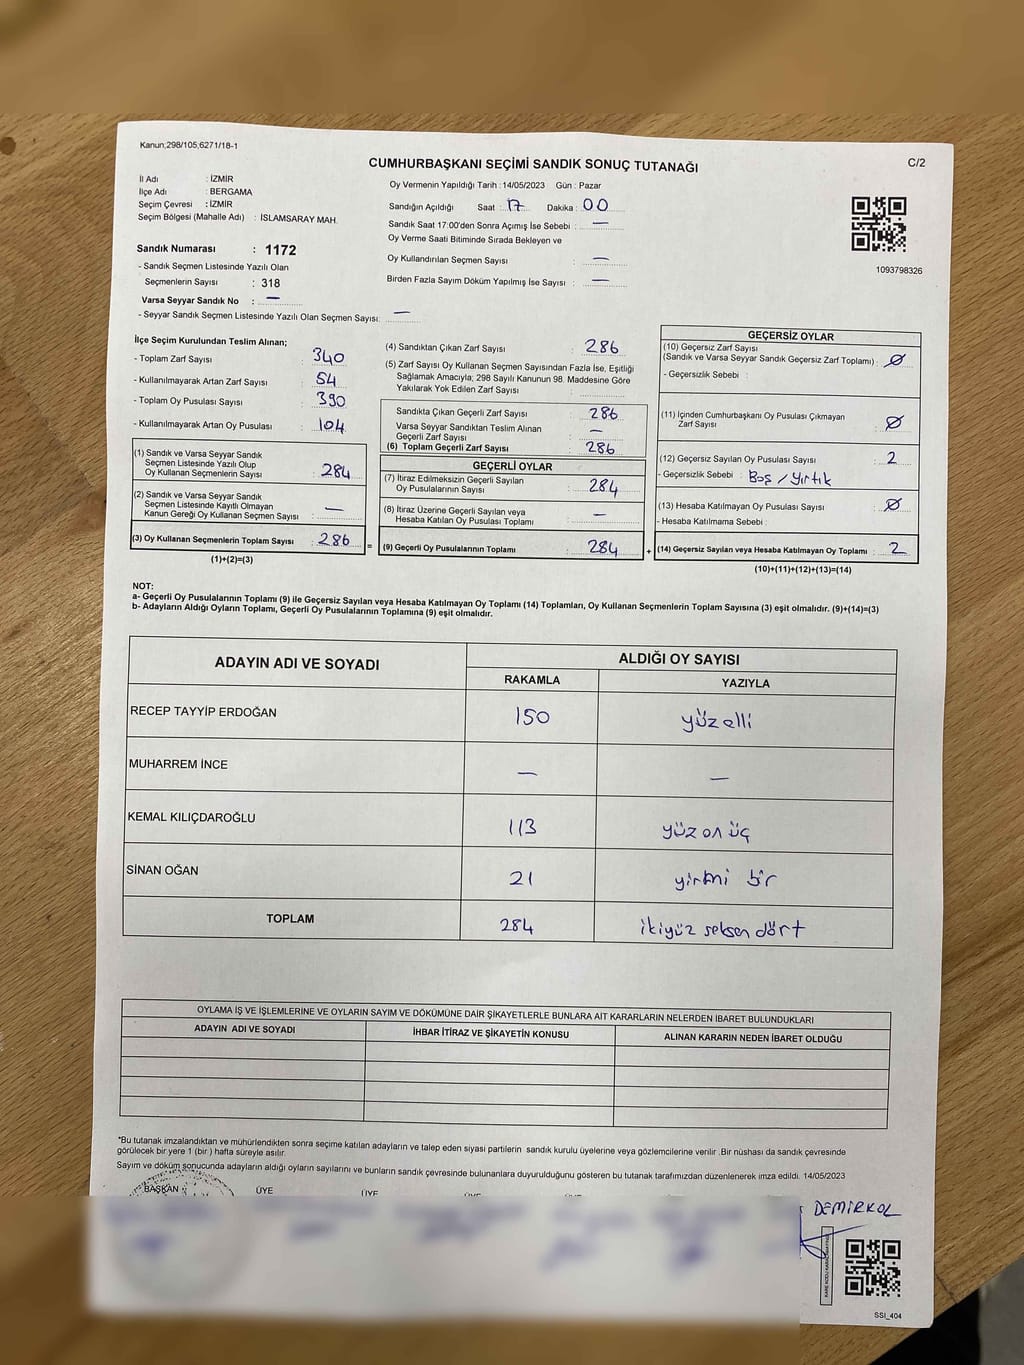 Kanun;298/105,6271/18-1
CUMHURBAŞKANI SEÇİMİ SANDIK SONUÇ TUTANAĞI
C/2
İl Adı : İZMİR
İlçe Adı : BERGAMA
Seçim Çevresi : İZMİR
Seçim Bölgesi (Mahalle Adı) : İSLAMSARAY MAH.
Sandık Numarası : 1172
- Sandık Seçmen Listesinde Yazılı Olan
Seçmenlerin Sayısı : 318
Varsa Seyyar Sandık No : —
- Seyyar Sandık Seçmen Listesinde Yazılı Olan Seçmen Sayısı: —
Oy Vermenin Yapıldığı Tarih : 14/05/2023 Gün : Pazar
Sandığın Açıldığı Saat : 17 Dakika : 00
Sandık Saat 17:00'den Sonra Açımış İse Sebebi : —
Oy Verme Saati Bitiminde Sırada Bekleyen ve
Oy Kullandırılan Seçmen Sayısı : —
Birden Fazla Sayım Döküm Yapılmış İse Sayısı : —
1093798326
İlçe Seçim Kurulundan Teslim Alınan;
- Toplam Zarf Sayısı : 340
- Kullanılmayarak Artan Zarf Sayısı : 54
- Toplam Oy Pusulası Sayısı : 390
- Kullanılmayarak Artan Oy Pusulası : 104
(1) Sandık ve Varsa Seyyar Sandık
Seçmen Listesinde Yazılı Olup
Oy Kullanan Seçmenlerin Sayısı : 284
(2) Sandık ve Varsa Seyyar Sandık
Seçmen Listesinde Kayıtlı Olmayan
Kanun Gereği Oy Kullanan Seçmen Sayısı : —
(3) Oy Kullanan Seçmenlerin Toplam Sayısı : 286
(1)+(2)=(3)
=
(4) Sandıktan Çıkan Zarf Sayısı : 286
(5) Zarf Sayısı Oy Kullanan Seçmen Sayısından Fazla İse, Eşitliği
Sağlamak Amacıyla; 298 Sayılı Kanunun 98. Maddesine Göre
Yakılarak Yok Edilen Zarf Sayısı :
Sandıkta Çıkan Geçerli Zarf Sayısı : 286
Varsa Seyyar Sandıktan Teslim Alınan
Geçerli Zarf Sayısı : —
(6) Toplam Geçerli Zarf Sayısı : 286
GEÇERLİ OYLAR
(7) İtiraz Edilmeksizin Geçerli Sayılan
Oy Pusulalarının Sayısı : 284
(8) İtiraz Üzerine Geçerli Sayılan veya
Hesaba Katılan Oy Pusulası Toplamı : —
(9) Geçerli Oy Pusulalarının Toplamı : 284
+
GEÇERSİZ OYLAR
(10) Geçersiz Zarf Sayısı
(Sandık ve Varsa Seyyar Sandık Geçersiz Zarf Toplamı) : Ø
- Geçersizlik Sebebi :
(11) İçinden Cumhurbaşkanı Oy Pusulası Çıkmayan
Zarf Sayısı : Ø
(12) Geçersiz Sayılan Oy Pusulası Sayısı : 2
- Geçersizlik Sebebi : Boş / yırtık
(13) Hesaba Katılmayan Oy Pusulası Sayısı : Ø
- Hesaba Katılmama Sebebi :
(14) Geçersiz Sayılan veya Hesaba Katılmayan Oy Toplamı : 2
(10)+(11)+(12)+(13)=(14)
NOT:
a- Geçerli Oy Pusulalarının Toplamı (9) ile Geçersiz Sayılan veya Hesaba Katılmayan Oy Toplamı (14) Toplamları, Oy Kullanan Seçmenlerin Toplam Sayısına (3) eşit olmalıdır. (9)+(14)=(3)
b- Adayların Aldığı Oyların Toplamı, Geçerli Oy Pusulalarının Toplamına (9) eşit olmalıdır.
ADAYIN ADI VE SOYADI ALDIĞI OY SAYISI
RAKAMLA YAZIYLA
RECEP TAYYİP ERDOĞAN 150 yüz elli
MUHARREM İNCE — —
KEMAL KILIÇDAROĞLU 113 yüz on üç
SİNAN OĞAN 21 yirmi bir
TOPLAM 284 ikiyüz seksen dört
OYLAMA İŞ VE İŞLEMLERİNE VE OYLARIN SAYIM VE DÖKÜMÜNE DAİR ŞİKAYETLERLE BUNLARA AİT KARARLARIN NELERDEN İBARET BULUNDUKLARI
ADAYIN ADI VE SOYADI İHBAR İTİRAZ VE ŞİKAYETİN KONUSU ALINAN KARARIN NEDEN İBARET OLDUĞU
*Bu tutanak imzalandıktan ve mühürlendikten sonra seçime katılan adayların ve talep eden siyasi partilerin sandık kurulu üyelerine veya gözlemcilerine verilir .Bir nüshası da sandık çevresinde
görülecek bir yere 1 (bir ) hafta süreyle asılır.
Sayım ve döküm sonucunda adayların aldığı oyların sayılarını ve bunların sandık çevresinde bulunanlara duyurulduğunu gösteren bu tutanak tarafımızdan düzenlenerek imza edildi. 14/05/2023
BAŞKAN ÜYE ÜYE
DEMİRKOL
SSI_404